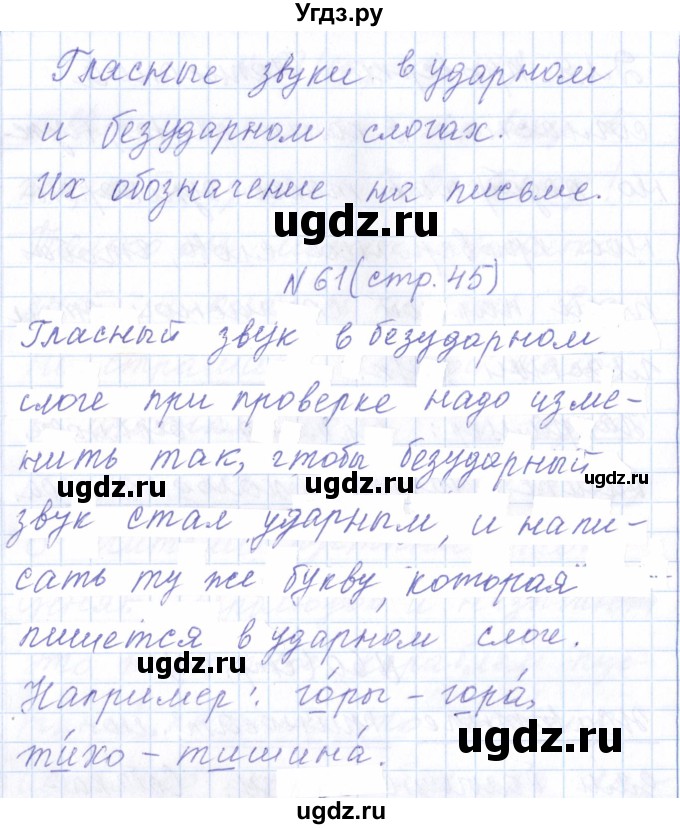 Угдз.ру
Гласные звуки в ударном
и безударном слогах.
Их обозначение на письме.
ugdz.ru
№61(стр.45)
Гласный звук в безударном
слоге при проверке надо изме-
нить так, чтобы безударный
ugdz.ru ugdz.ru ugdz.ru
звук стал ударным, и напи-
сать ту же букву, которая
пишется в ударном слоге.
ugdz.ru
Например: го́ры - гора́,
ти́хо - тишина́.
ugdz.ru
ugdz.ru